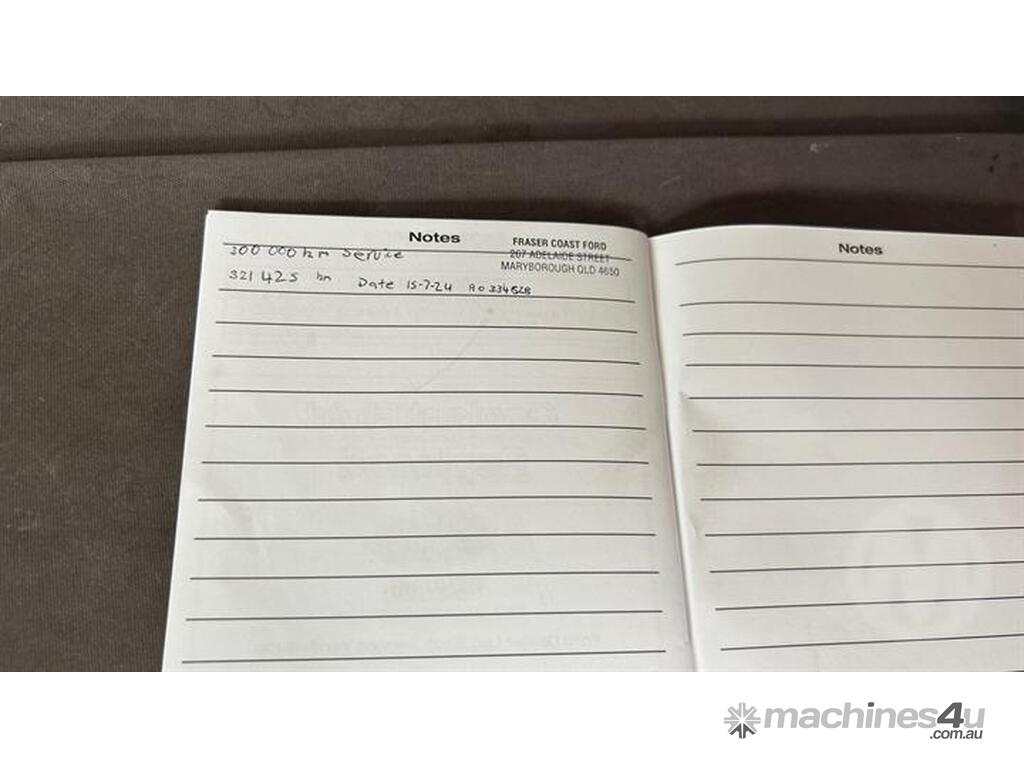 Notes
FRASER COAST FORD
267 ADELAIDE STREET
MARYBOROUGH QLD 4650
300 000 km Service
321 425 km Date 15-7-24
Notes
machines4u
.com.au